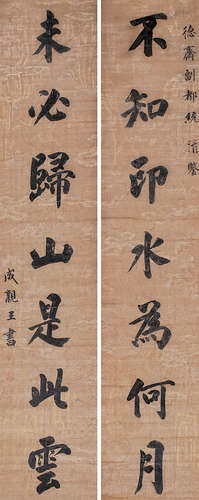 德齋副都統 清鑒
不知印水為何月
未必歸山是此雲
成親王書